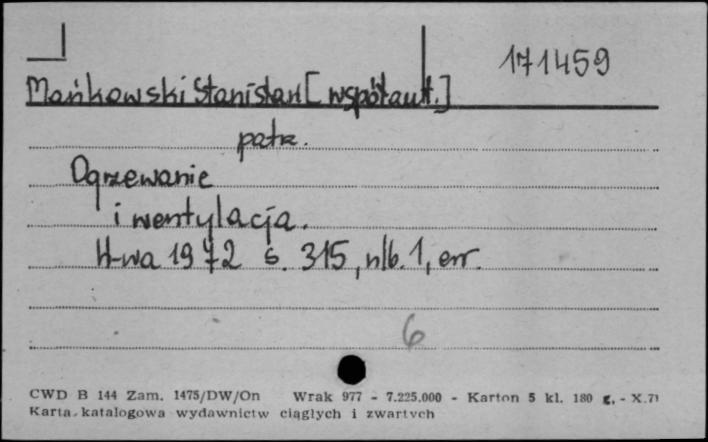 171459
Mańkowski Stanisław [współaut.]
patrz.
Ogrzewanie
i wentylacja.
W-wa 1972 s. 315, nlb. 1, err.
6
CWD B 144 Zam. 1475/DW/On Wrak 977 - 7.225.000 - Karton 5 kl. 180 g. - X.71
Karta katalogowa wydawnictw ciągłych i zwartych